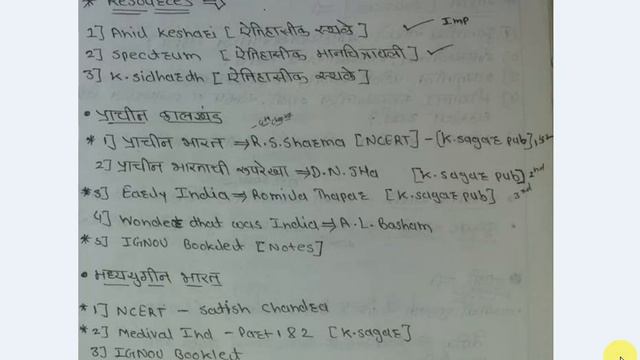 * Resources ⇒
1] Anil Keshari [ ऐतिहासीक स्थळे ] ✓ Imp
2] Spectrum [ ऐतिहासीक मानचित्रावली ] ✓
3] K. sidhaedh [ ऐतिहासीक स्थळे ]
• प्राचीन कालखंड
* 1] प्राचीन भारत ⇒ R.S. Sharma [NCERT] - [K.sagar pub] 1st
2] प्राचीन भारताची रूपरेखा ⇒ D.N. JHa [K.sagar pub] 2nd
* 3] Early India ⇒ Romila Thapar [K.sagar pub] 3rd
4] wonder that was India ⇒ A.L. Basham
* 5] IGNOU Booklect [Notes]
• मध्ययुगीन भारत
* 1] NCERT - Satish Chandra
* 2] Medival Ind - Part 1 & 2 [K.sagar]
3] IGNOU Booklect